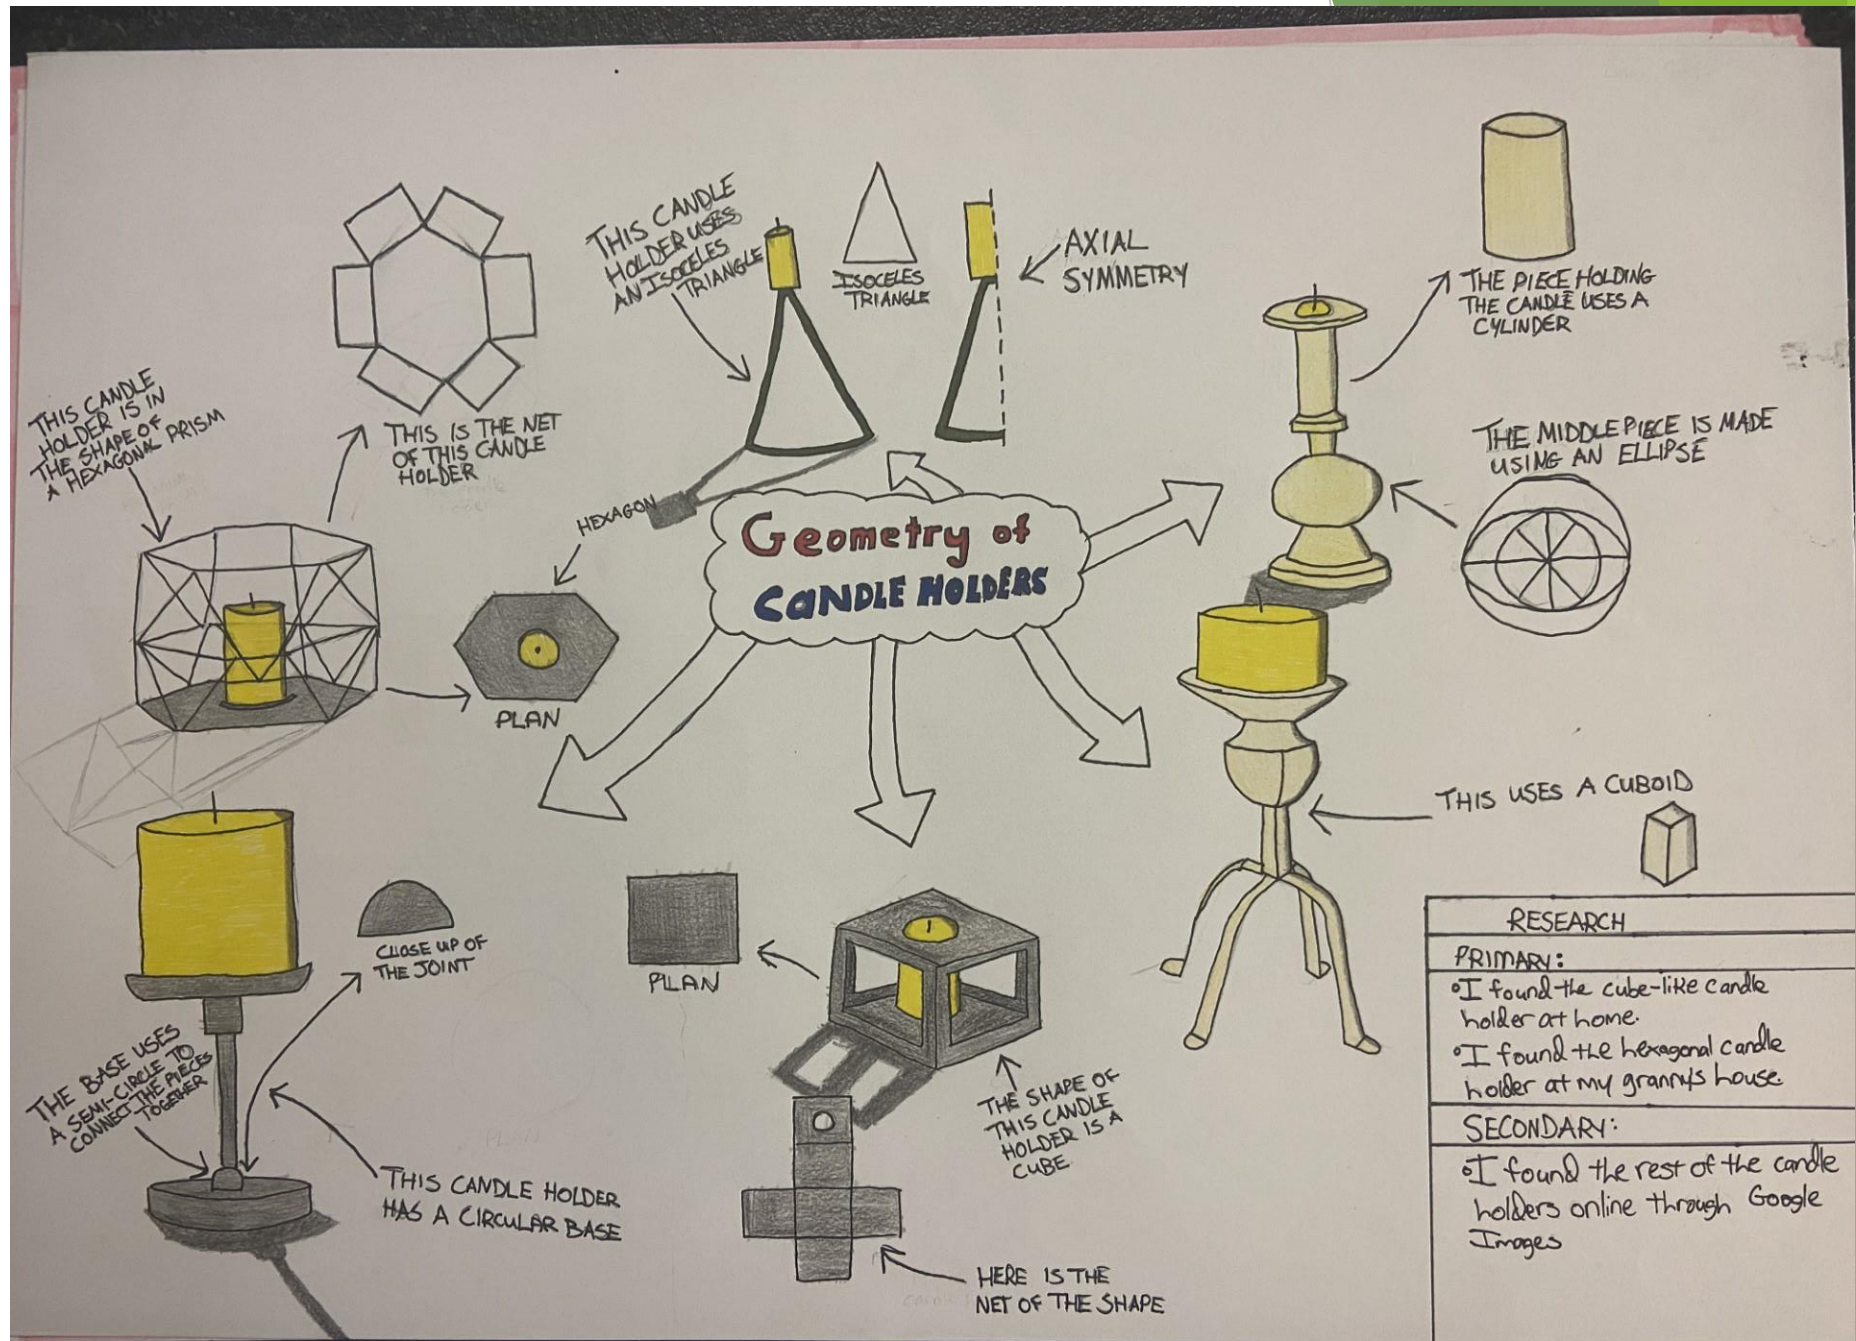 Geometry of
CANDLE HOLDERS
THIS CANDLE
HOLDER IS IN
THE SHAPE OF
A HEXAGONAL PRISM
THIS IS THE NET
OF THIS CANDLE
HOLDER
HEXAGON
PLAN
THIS CANDLE
HOLDER USES
AN ISOCELES
TRIANGLE
ISOCELES
TRIANGLE
AXIAL
SYMMETRY
THE PIECE HOLDING
THE CANDLE USES A
CYLINDER
THE MIDDLE PIECE IS MADE
USING AN ELLIPSE
THIS USES A CUBOID
CLOSE UP OF
THE JOINT
THE BASE USES
A SEMI-CIRCLE TO
CONNECT THE PIECES
TOGETHER
THIS CANDLE HOLDER
HAS A CIRCULAR BASE
PLAN
THE SHAPE OF
THIS CANDLE
HOLDER IS A
CUBE
HERE IS THE
NET OF THE SHAPE
RESEARCH
PRIMARY:
•I found the cube-like candle
holder at home.
•I found the hexagonal candle
holder at my granny's house.
SECONDARY:
•I found the rest of the candle
holders online through Google
Images